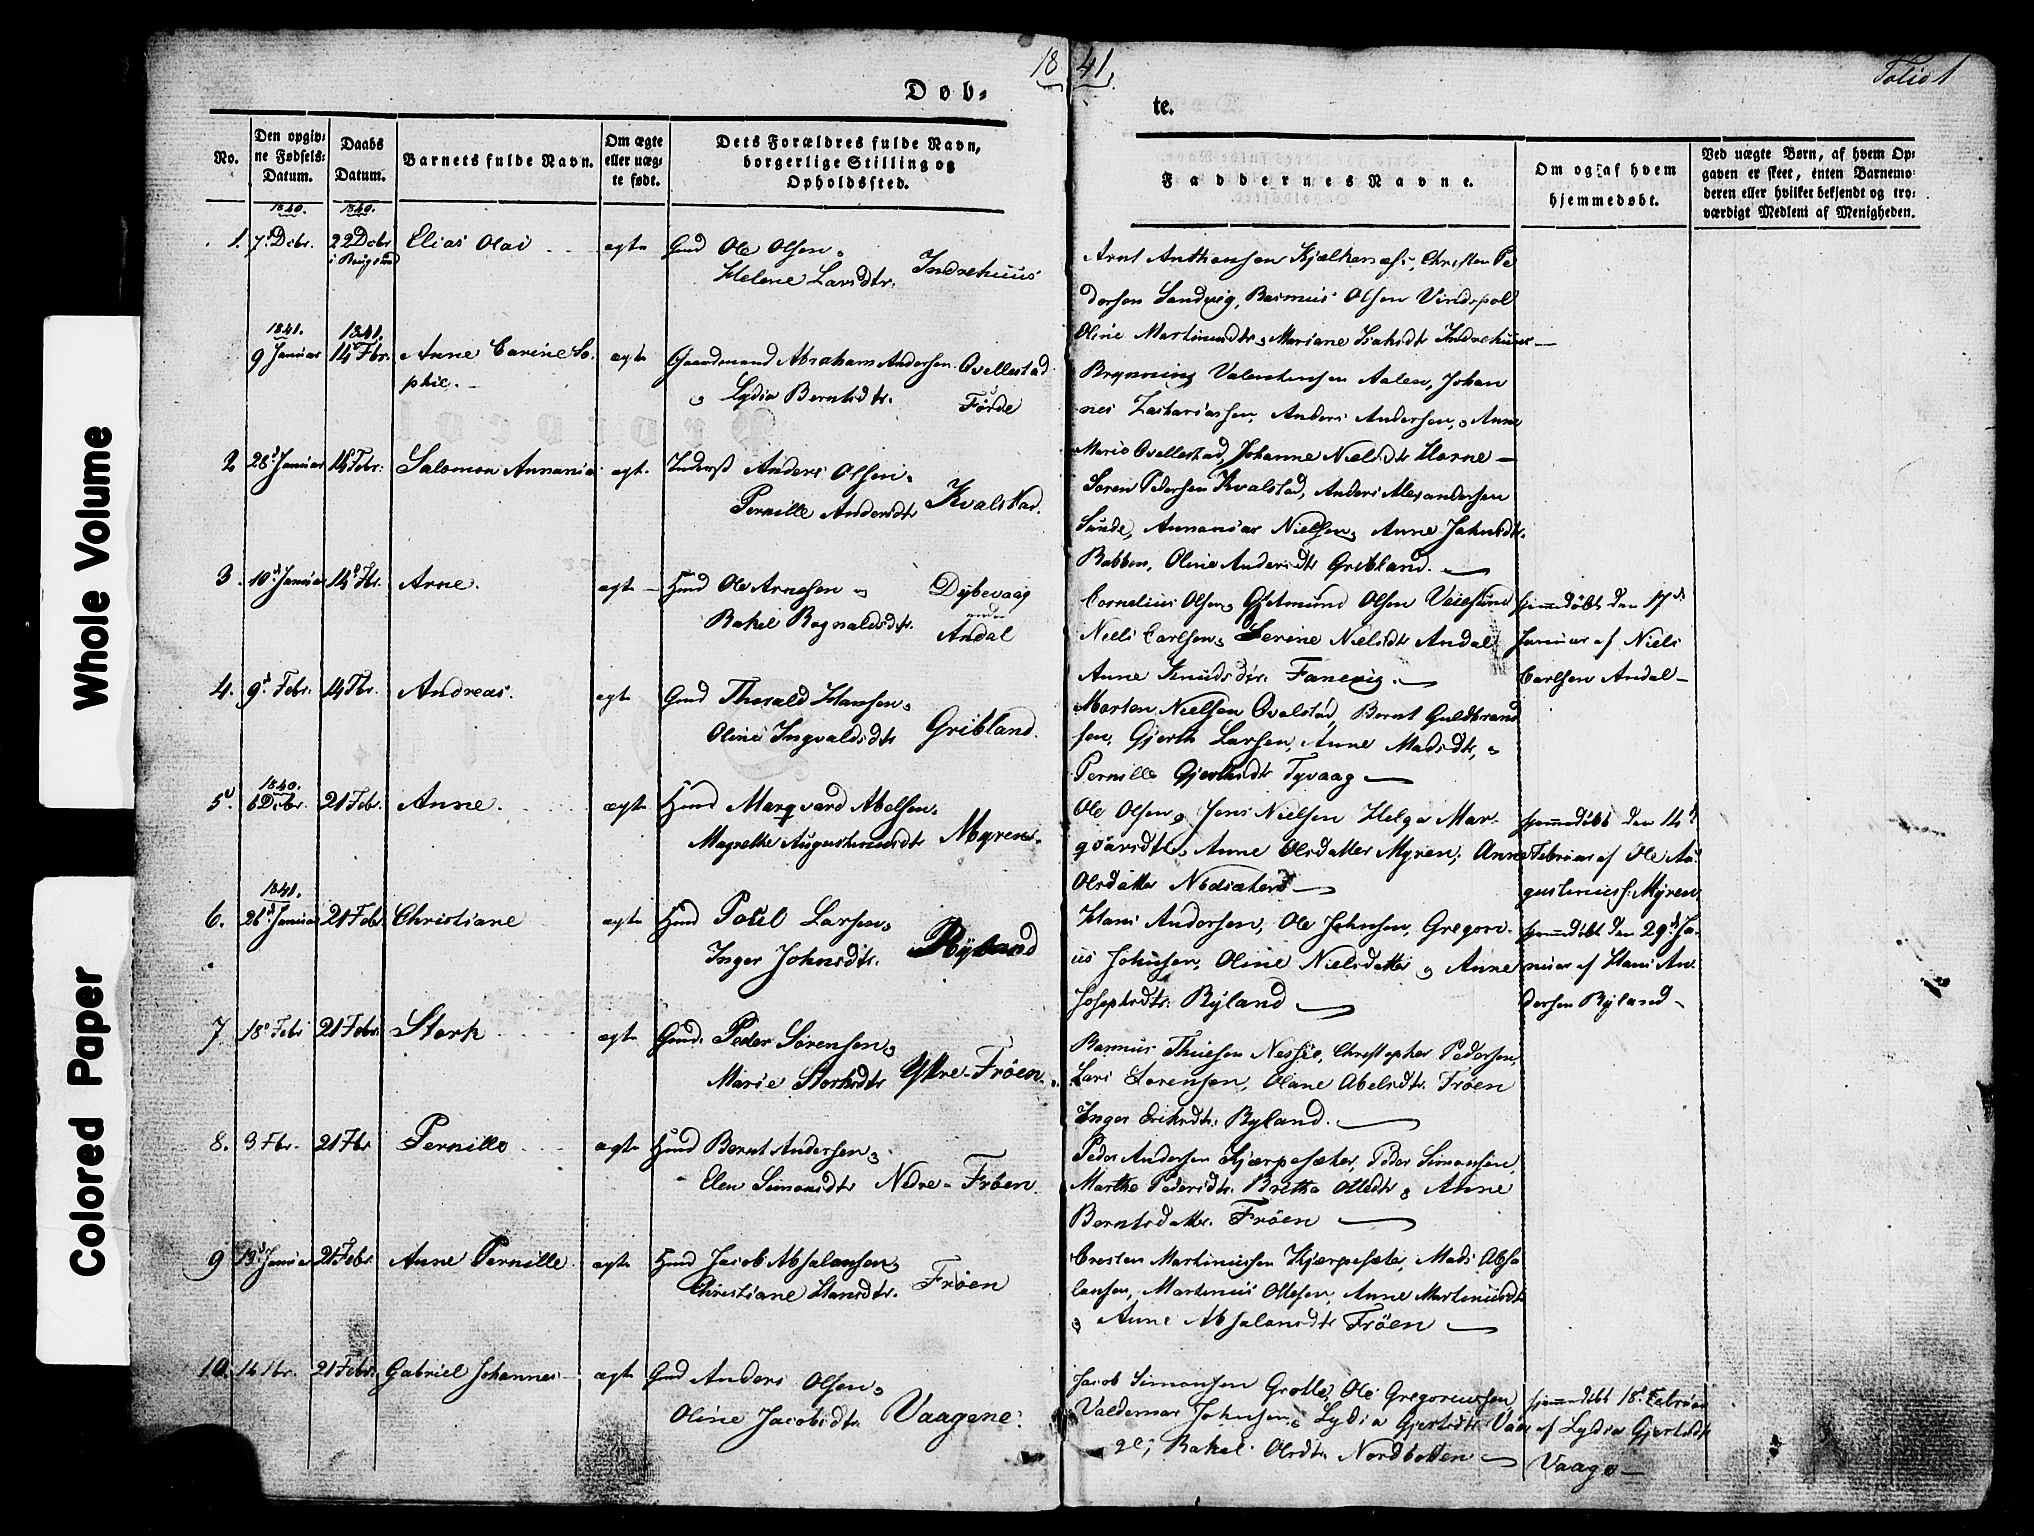 Whole Volume
Colored Paper
18 41.
Folio 1
Døb-
te.
No.
Den opgiv-
ne Fødsels-
Datum.
Daabs
Datum.
Barnets fulde Navn.
Om ægte
eller uæg-
te født.
Dets Forældres fulde Navn,
borgerlige Stilling og
Opholdssted.
Faddernes Navne.
Om og af hvem
hjemmedøbt.
Ved uægte Børn, af hvem Op-
gaven er skeet, enten Barnemo-
deren eller hvilket bekjendt og tro-
værdigt Medlem af Menigheden.
1840. 1840.
1. 7d Dcbr. 22 Dcbr Elias Olai ægte Gmd Ole Olsen &
Helene Larsdtr. Indrehuus
Arnt Anthonsen Kjelkenæs, Christen Pe
dersen Sandvig, Rasmus Olsen Vindspol
Oline Martinusdtr & Mariane Isaksdtr Indrehuus
1841. 1841.
9 Januar 14 Fbr. Anne Carine So-
phie.
ægte Gaardmand Abraham Andersen Qvellestad
& Lydia Berntsdtr. Førde
Brynning Valentinsen Aalen, Johan
nes Zachariassen, Anders Andersen, & Anne
Marie Qvellestad, Johanne Nielsdtr Horne
2 28d Januar 14 Febr. Salomon Annanias ægte Inderst Anders Olsen &
Pernille Andersdtr Kvalstad.
Søren Pedersen Kvalstad, Anders Alexandersen
Sunde, Annanias Nielsen, Anne Johnsdtr.
Rabben, Oline Andersdtr Gribland.
3. 10d Januar 14d Fbr. Arne. ægte Hmd Ole Arnesen &
Rakel Ragnaldsdtr. Dybevaag
under
Andal
Cornelius Olsen & Gjetmund Olsen Veiesund
Niels Carlsen & Serine Nielsdtr Andal
Anne Knudsdtr. Fanevig.
hjemmedøbt den 17d
Januar af Niels
Carlsen Andal
4. 9d Febr. 14 Fbr. Andreas. ægte Gmd Thorald Hansen &
Oline Ingvaldsdtr Gribland.
Morten Nielsen Qvalstad, Bernt Guldbrand
sen, Gjerth Larsen, Anne Madsdtr, &
Pernille Gjerthsdtr Tyvaag
1840.
5d. 6 Dcbr. 21 Febr. Anne. ægte Hmd Marqvard Abelsen &
Magrethe Augustinusdtr Myren.
Ole Olsen & Jens Nielsen Helga Mar-
qvarsdtr & Anne Olsdatter Myren, Anne
Olsdatter Nedsæter
hjemmedøbt den 14d
Februar af Ole Au-
gustinuss: Myren.
1841.
6. 26d Januar 21 Febr. Christiane ægte Hmd Poul Larsen &
Inger Johnsdtr. Ryland
Hans Andersen, Ole Johnsen, Gregori-
us Johnsen, Oline Nielsdatter & Anne
Josephsdtr. Ryland
hjemmedøbt den 29d Ja-
nuar af Hans An-
dersen Ryland
7. 18d Febr 21 Febr. Stark ægte Gmd. Peder Sørensen &
Marie Starksdtr Yttre-Frøen.
Rasmus Thuesen Nessje, Christopher Pedersen,
Lars Sørensen, Oline Abelsdtr. Frøen
Inger Eriksdtr. Ryland.
8. 3 Fbr. 21 Fbr Pernille ægte Hmd Bernt Andersen &
Elen Simonsdtr Nedre-Frøen.
Peder Andersen Kjærpesæter, Peder Simonsen,
Marthe Pedersdtr. Brethe Olledtr & Anne
Berntsdatter. Frøen
9 13d Januar 21 Febr. Anne Pernille ægte Hmd Jacob Absalonsen &
Christiane Hansdtr. Frøen
Cresten Martinusen Kjærpesæter, Mads Absa
lonsen, Martinus Ollesen, Anne Martinusdtr
& Anne Absalonsdtr Frøen
10. 14 Fbr. 21 Febr. Gabriel Johannes ægte Gmd Anders Olsen &
Oline Jacobsdtr. Vaagene.
Jacob Simonsen Grotle, Ole Gregoriussen
Valdemar Johnsen & Lydia Gjertsdtr Vaa
ge, Rakel Olsdtr Nordbotten
hjemmedøbt 18d Februar
af Lydia Gjertsdtr
Vaage